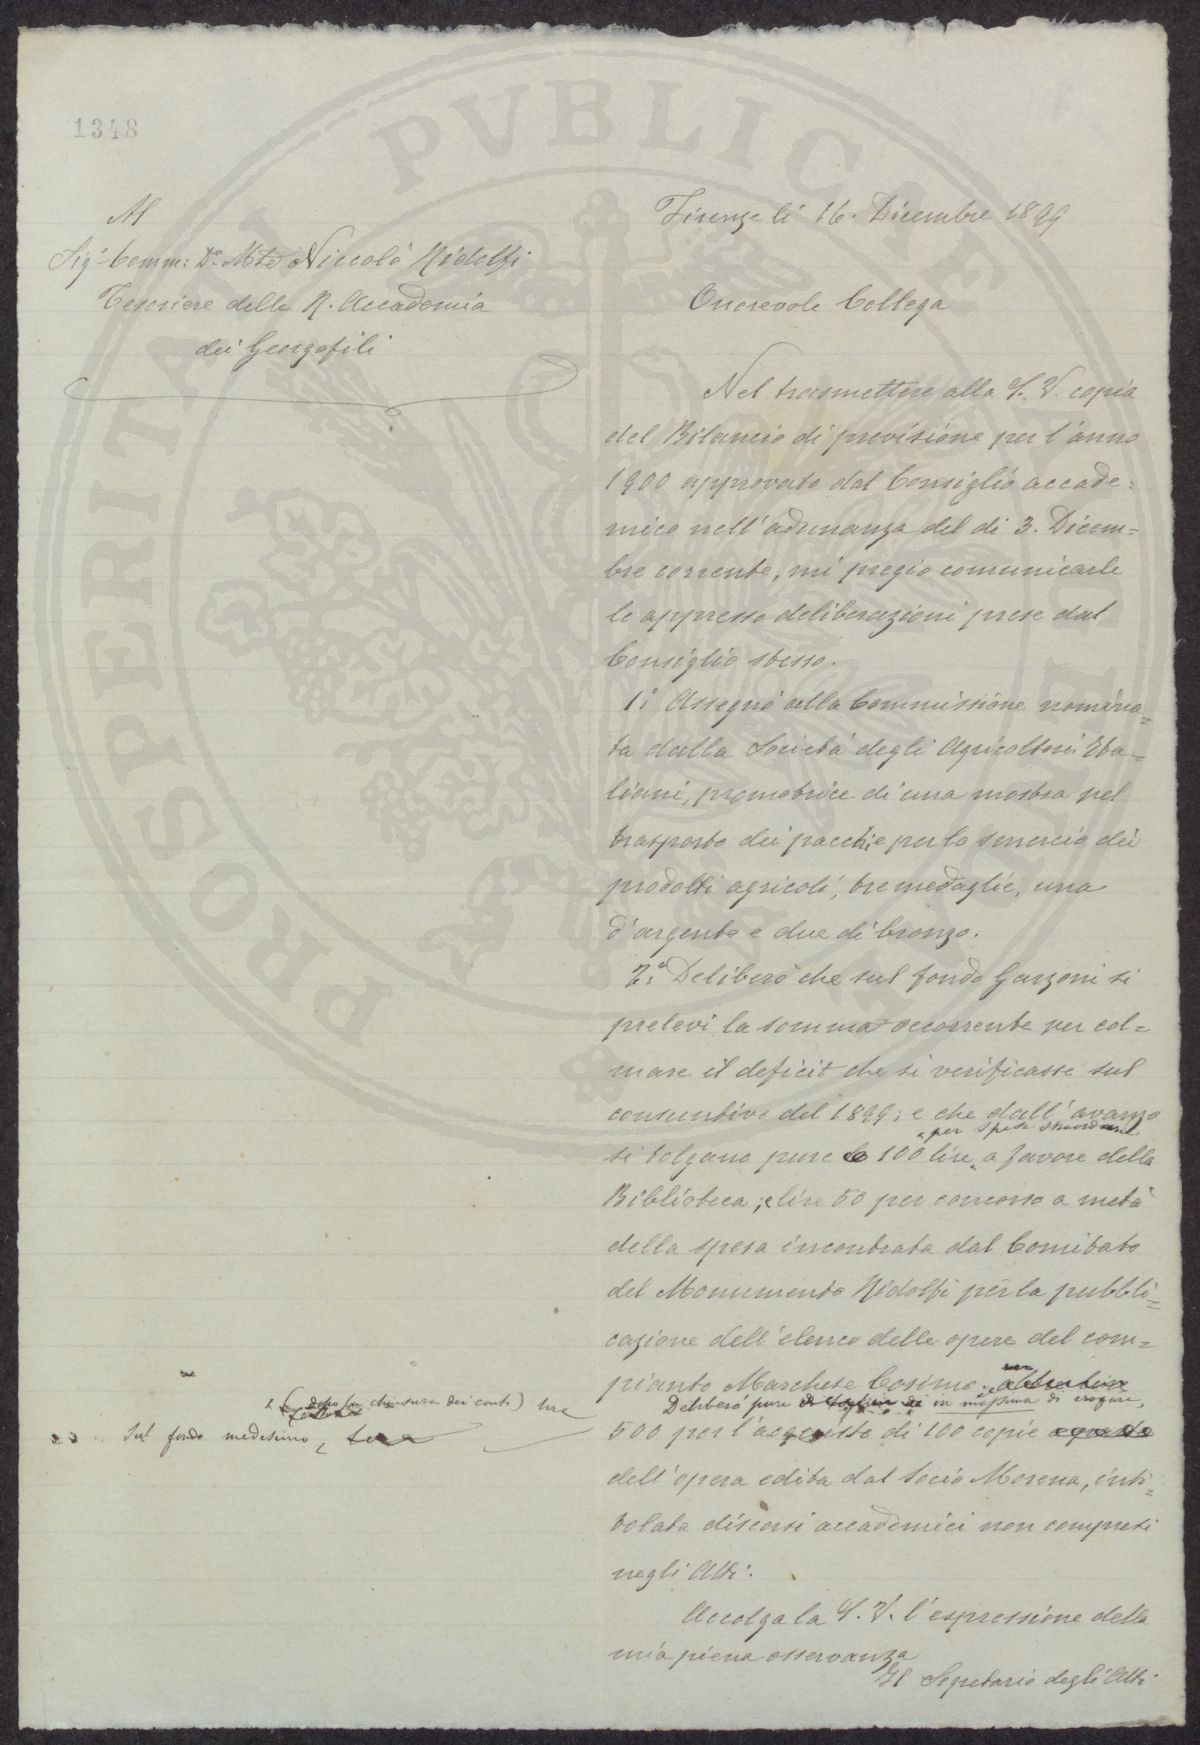 1348
Al
Sig.r Comm: Dr. Mse Niccolò Ridolfi
Tesoriere della R. Accademia
dei Georgofili
Firenze lì 16. Dicembre 1899
Onorevole Collega
Nel trasmettere alla S. V. copia
del Bilancio di previsione per l'anno
1900 approvato dal Consiglio accade=
mico nell'adunanza del dì 3. Dicem=
bre corrente, mi pregio comunicarle
le appresso deliberazioni prese dal
Consiglio stesso.
1.° Assegnò alla Commissione nomina=
ta dalla Società degli Agricoltori Ita=
liani, promotrice di una mostra pel
trasporto dei pacchi e per lo smercio dei
prodotti agricoli, tre medaglie, una
d'argento e due di bronzo.
2.° Deliberò che sul fondo Garzoni si
prelevi la somma occorrente per col=
mare il deficit che si verificasse sul
consuntivo del 1899; e che dall'avanzo
per spese straordinarie
si tolgano pure 100 lire a favore della
Biblioteca; e lire 50 per concorso a metà
della spesa incontrata dal Comitato
del Monumento Ridolfi per la pubbli=
cazione dell'elenco delle opere del com=
pianto Marchese Cosimo;
Deliberò pure in massima di erogare,
(dopo la chiusura dei conti) lire
sul fondo medesimo
500 per l'acquisto di 100 copie
dell'opera edita dal socio Morena, inti=
tolata discorsi accademici non compresi
negli Atti.
Accolga la S. V. l'espressione della
mia piena osservanza
Il Segretario degli Atti
PROSPERITATI PUBLICAE